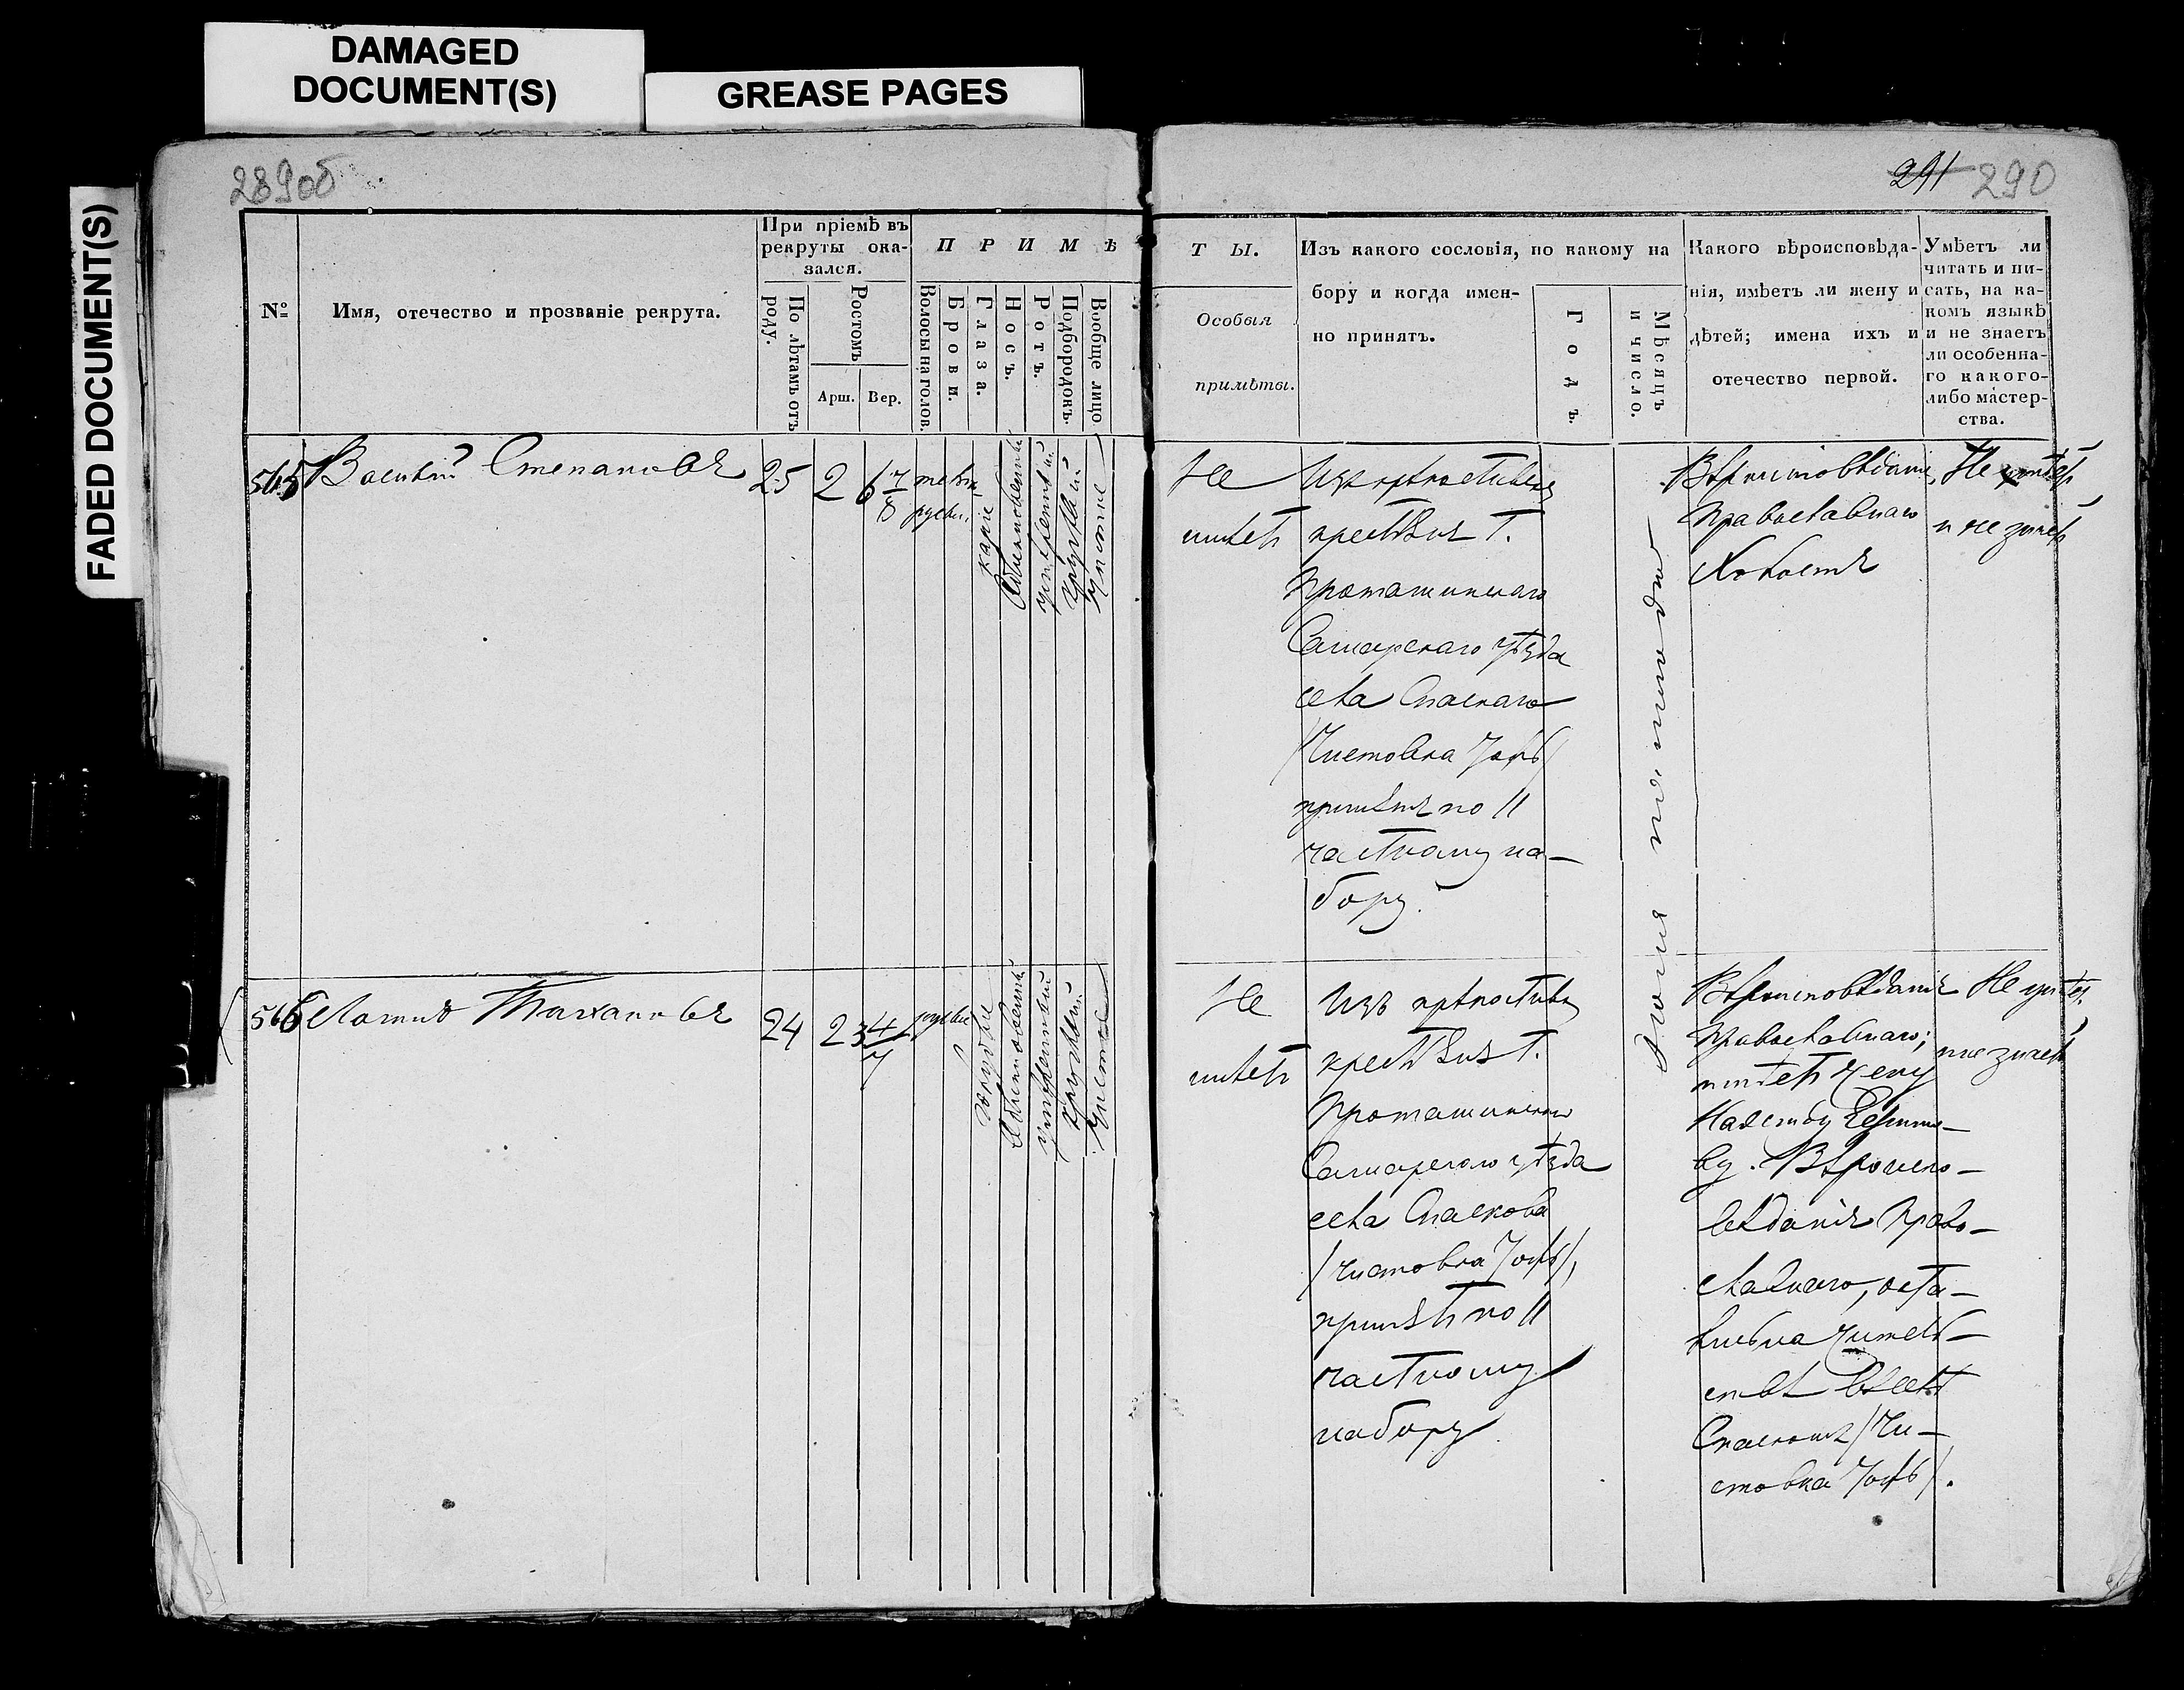 DAMAGED
DOCUMENT(S)
GREASE PAGES
FADED DOCUMENT(S)
289об
291 290
№
Имя, отечество и прозваніе рекрута.
При пріемѣ въ
рекруты ока-
зался.
По лѣтамъ отъ
роду.
Ростомъ
Арш. Вер.
П Р И М Ѣ
Волосы на голов.
Брови.
Глаза.
Носъ.
Ротъ.
Подбородокъ.
Вообще лицо
Т Ы.
Особыя
примѣты.
Изъ какого сословія, по какому на
бору и когда имен-
но принятъ.
Годъ.
Мѣсяцъ
и число.
Какого вѣроисповѣда-
нія, имѣетъ ли жену и
дѣтей; имена ихъ и
отечество первой.
Умѣетъ ли
читать и пи-
сать, на ка-
комъ языкѣ
и не знаетъ
ли особенна-
го какого-
либо мастер-
ства.
565 Василій Степановъ
25 2 6 7/8
каріе
умѣренный
круглый
чистое
Не
имѣетъ
Изъ крѣпостныхъ
крест Г.
Самарскаго уѣзда
села Спаскаго
/Чистовка тожъ/
принятъ по 11
частному на-
бору.
Іюня
Вѣроисповѣданія
православнаго
Холостъ
Не умѣетъ
и не знаетъ
566
24 2 3 4/7
русые
голубые
обыкновенный
умѣренный
круглый
чистое
Не
имѣетъ
Изъ крѣпостныхъ
крест Г.
Самарскаго уѣзда
села Спаскова
/Чистовка тожъ/,
принятъ по 11
частному
набору
Вѣроисповѣданія
православнаго;
имѣетъ жену
Настасью
ву. Вѣроиспо-
вѣданія право-
славнаго, оста-
жител-
ствѣ въ селѣ
Спаскомъ /Чи-
стовка тожъ/.
Не умѣетъ.
и не знаетъ